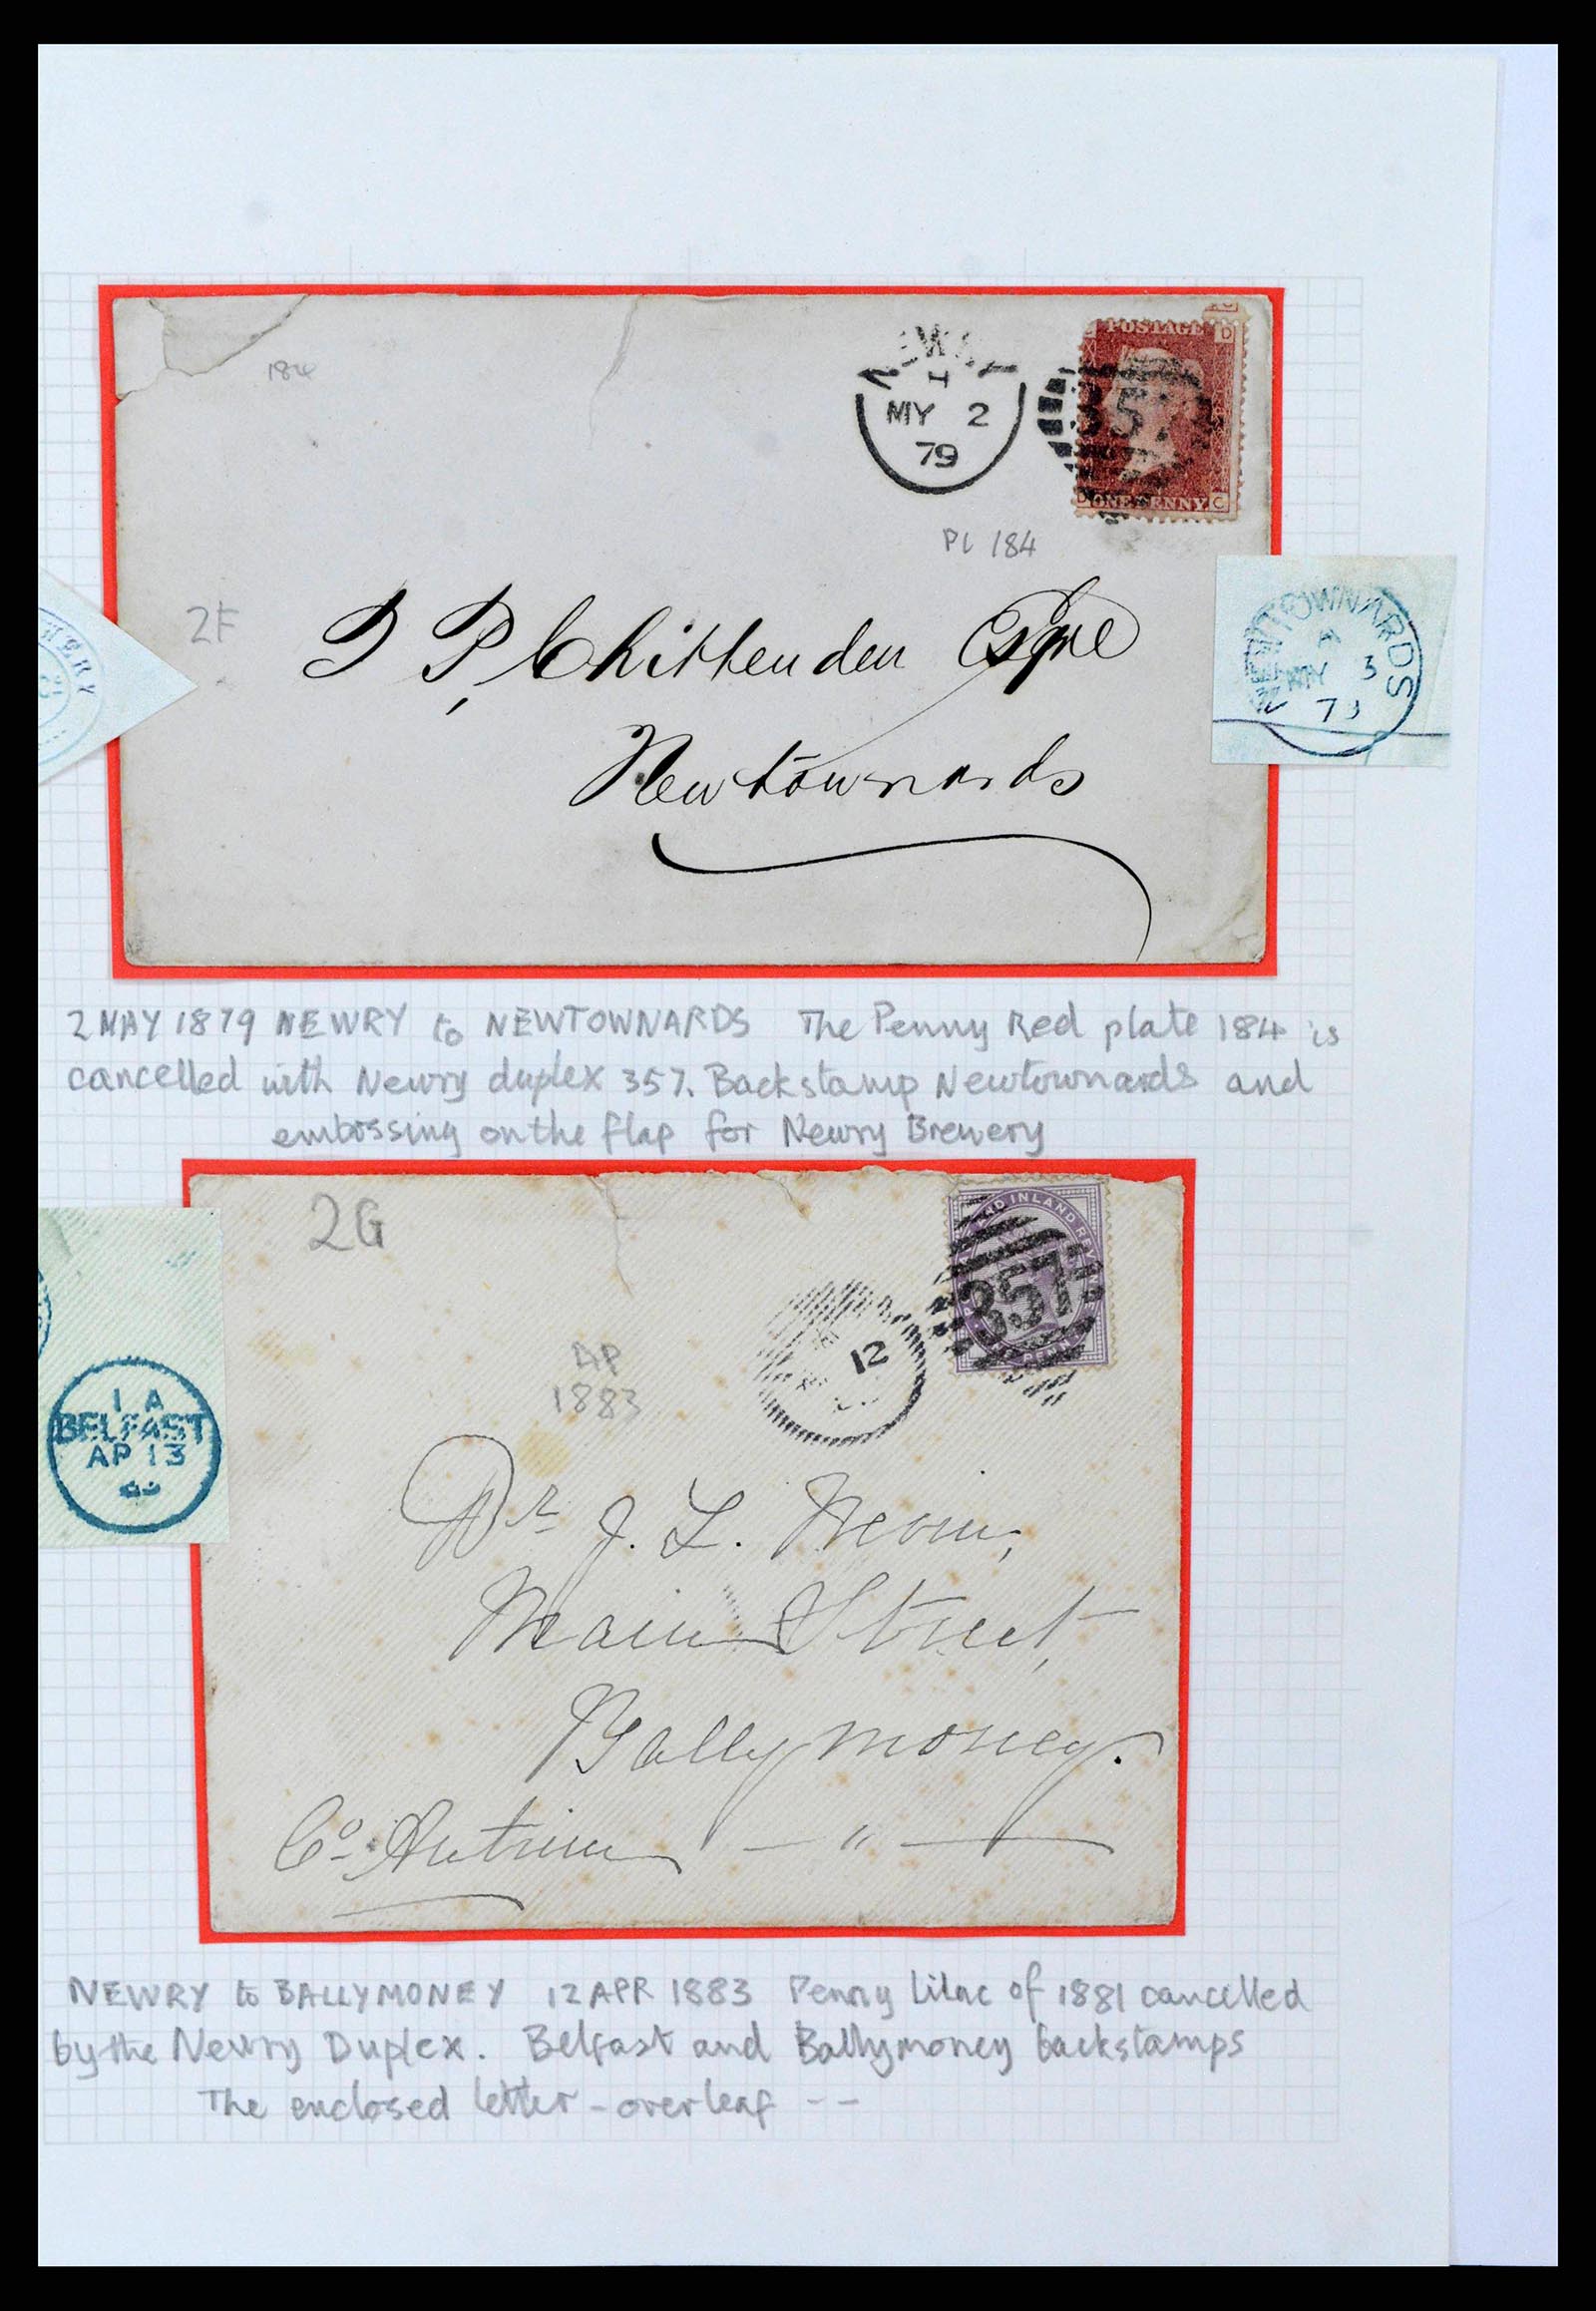 184
NEWRY
H
MY 2
79
357
POSTAGE
D
D ONE PENNY C
PL 184
2F
Chittenden Esqre
Newtownards
NEWTOWNARDS
A
MY 3
79
2 MAY 1879 NEWRY to NEWTOWNARDS The Penny Red plate 184 is
cancelled with Newry duplex 357. Backstamp Newtownards and
embossing on the flap for Newry Brewery
2G
AND INLAND REV
357
12
AP
1883
1 A
BELFAST
AP 13
Dr J. L.
Main Street,
Ballymoney.
Co. Antrim — " —
NEWRY to BALLYMONEY 12 APR 1883 Penny Lilac of 1881 cancelled
by the Newry Duplex. Belfast and Ballymoney backstamps
The enclosed letter - overleaf - -